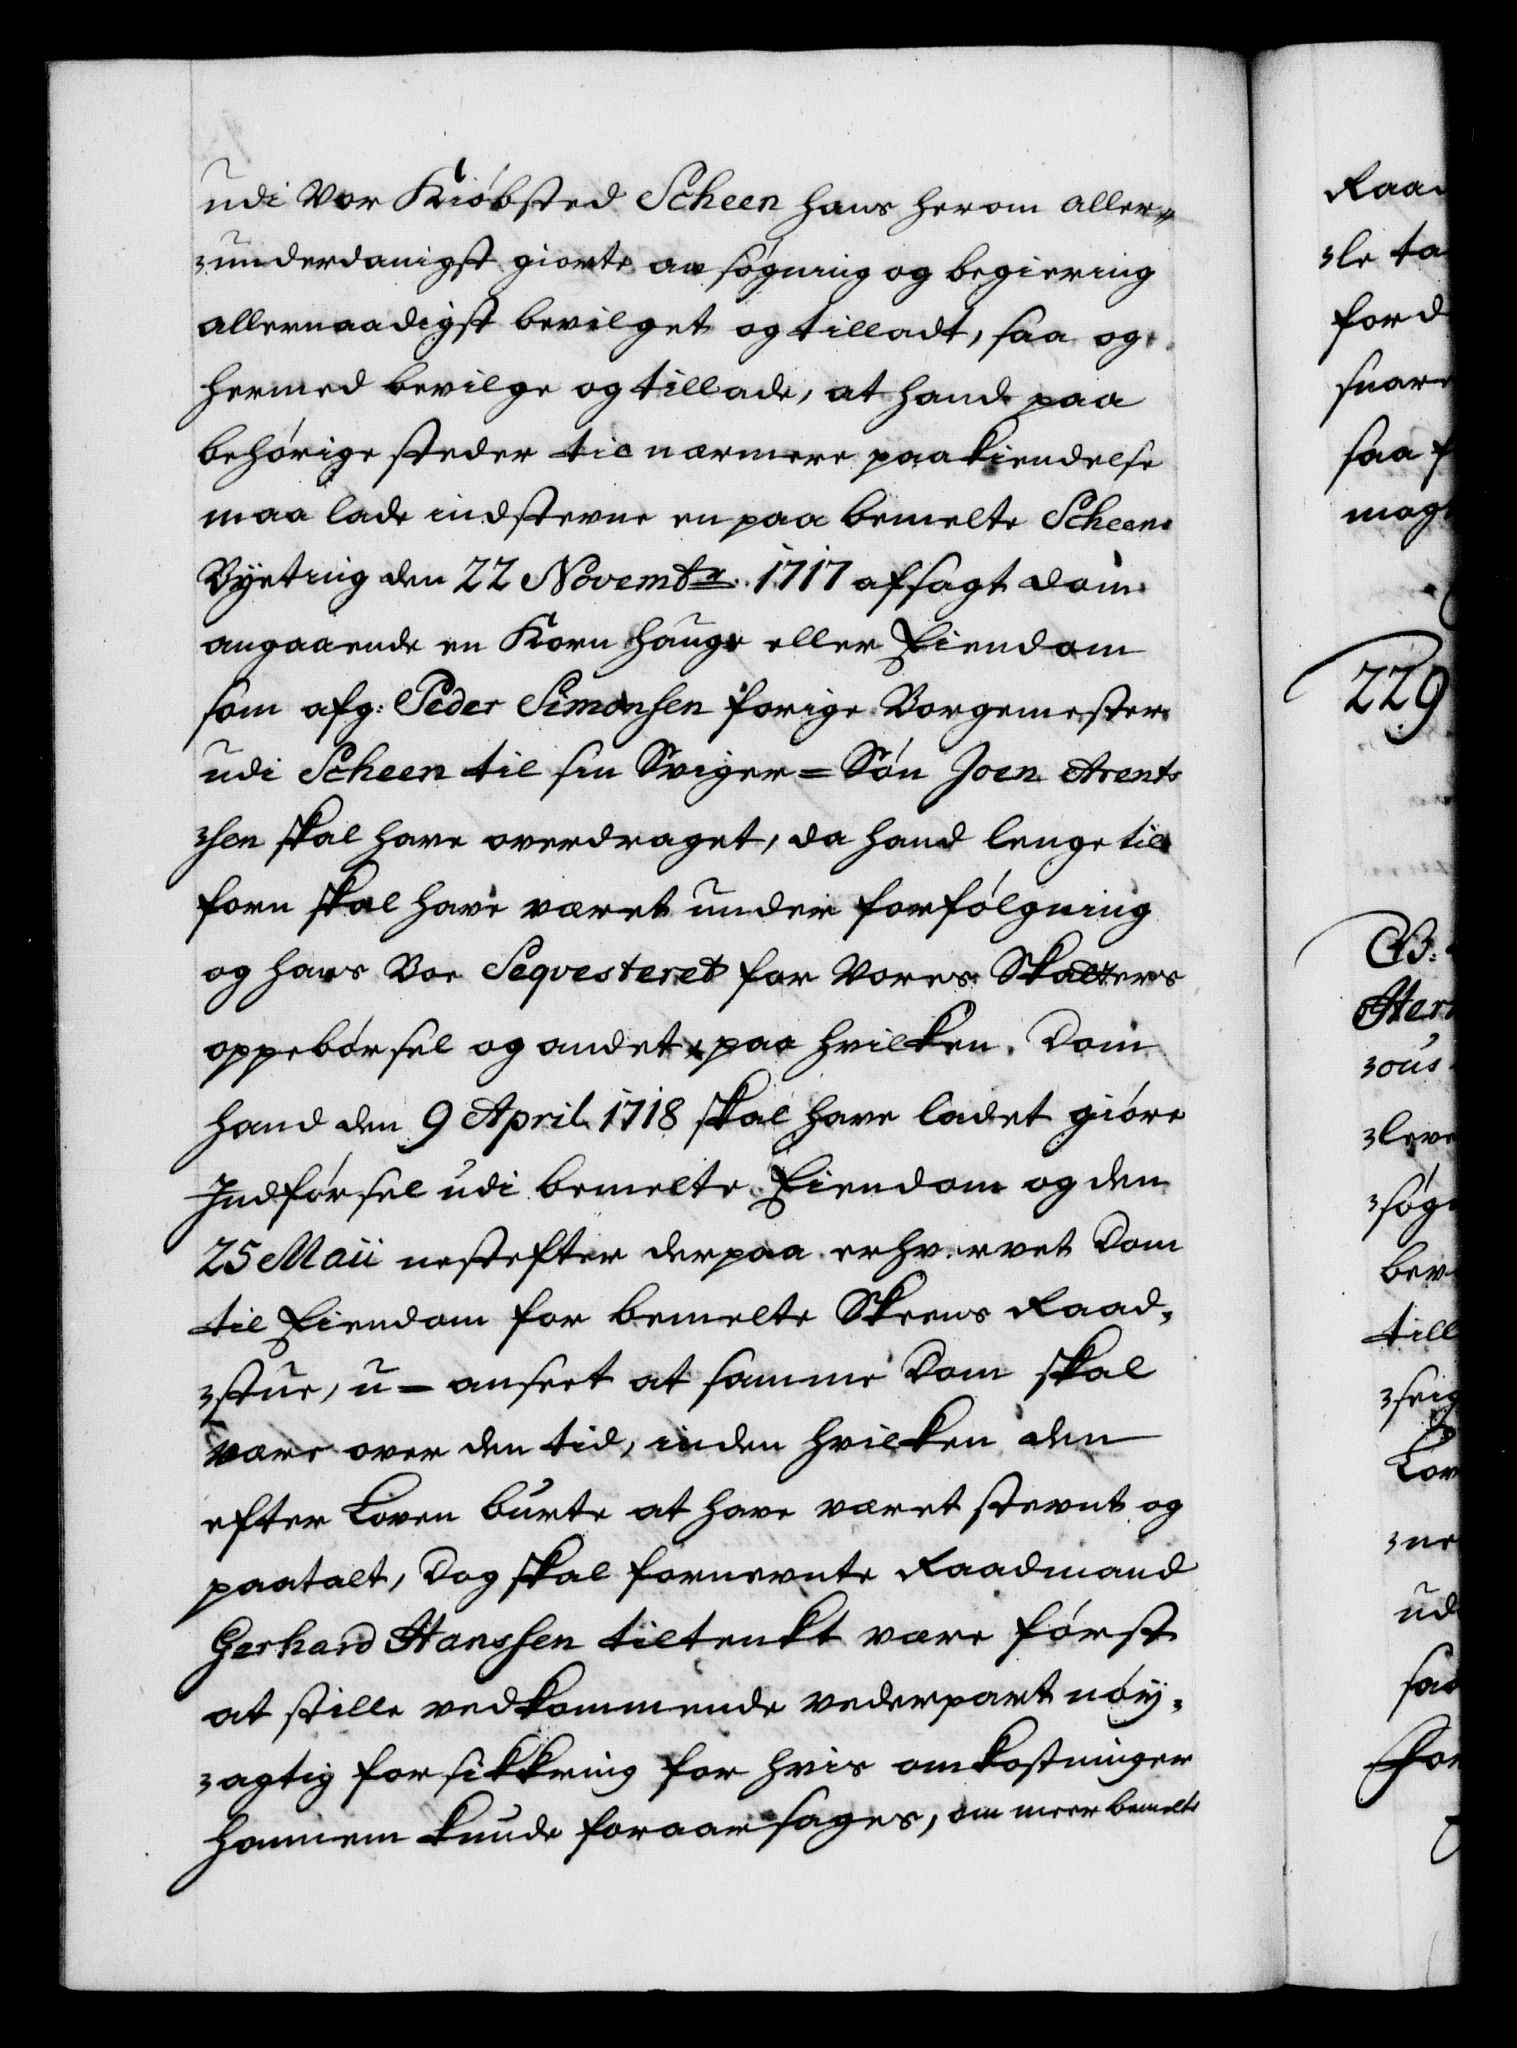 udi Vor Kiøbsted Scheen hans herom aller=
=underdanigst giorte ansøgning og begiering
allernaadigst bevilget og tilladt, saa og
hermed bevilge og tillade, at hand paa
behørige steder til nærmere paakiendelse
maa lade indstevne en paa bemelte Scheens
Byeting den 22 Novembr. 1717 afsagt Dom
angaaende en Korn Hauge eller Eiendom
som afg: Peder Simonsen forige Borgemester
udi Scheen til sin Sviger=Søn Joen Arent
=sen skal have overdraget, da hand lenge til
forn skal have været under forfølgning
og hans Boe Seqvesteret for Vores Skatters
oppebørsel og andet, paa hvilken Dom
hand den 9 April 1718 skal have ladet giøre
Indførsel udi bemelte Eiendom og den
25 Maii nestefter derpaa erhvervet Dom
til Eiendom for bemelte Skeens Raad=
=stue, u=anseet at samme Dom skal
være over den tid, inden hvilken den
efter Loven burte at have været stevnt og
paatalt, Dog skal fornevnte Raadmand
Gerhard Hanssen tiltenkt være først
at stille vedkommende vederpart nøy=
=agtig forsikkring for hvis omkostninger
hannem kunde foraarsages, om meerbemelte
Raad
=le ta
for d
snare
saa f
mag
229
B:
Her
=ous
=leve
=søg
bev
till
=seig
Lov
=ne
ud
saa
For